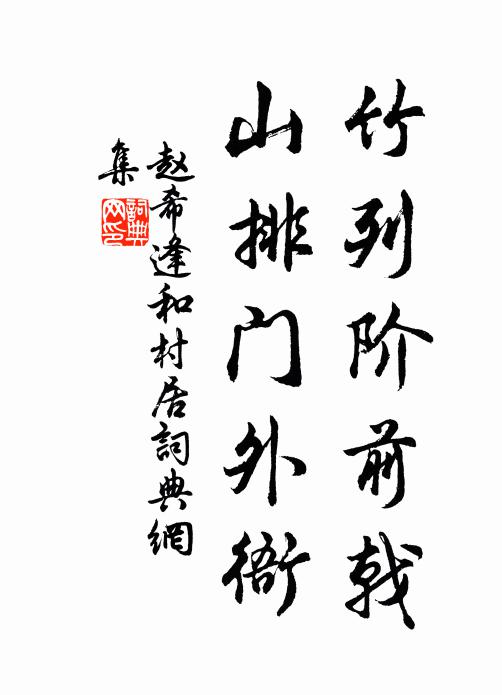 竹列阶前戟
山排门外衙
赵希逢和村居詞典網
集
詞典
网印